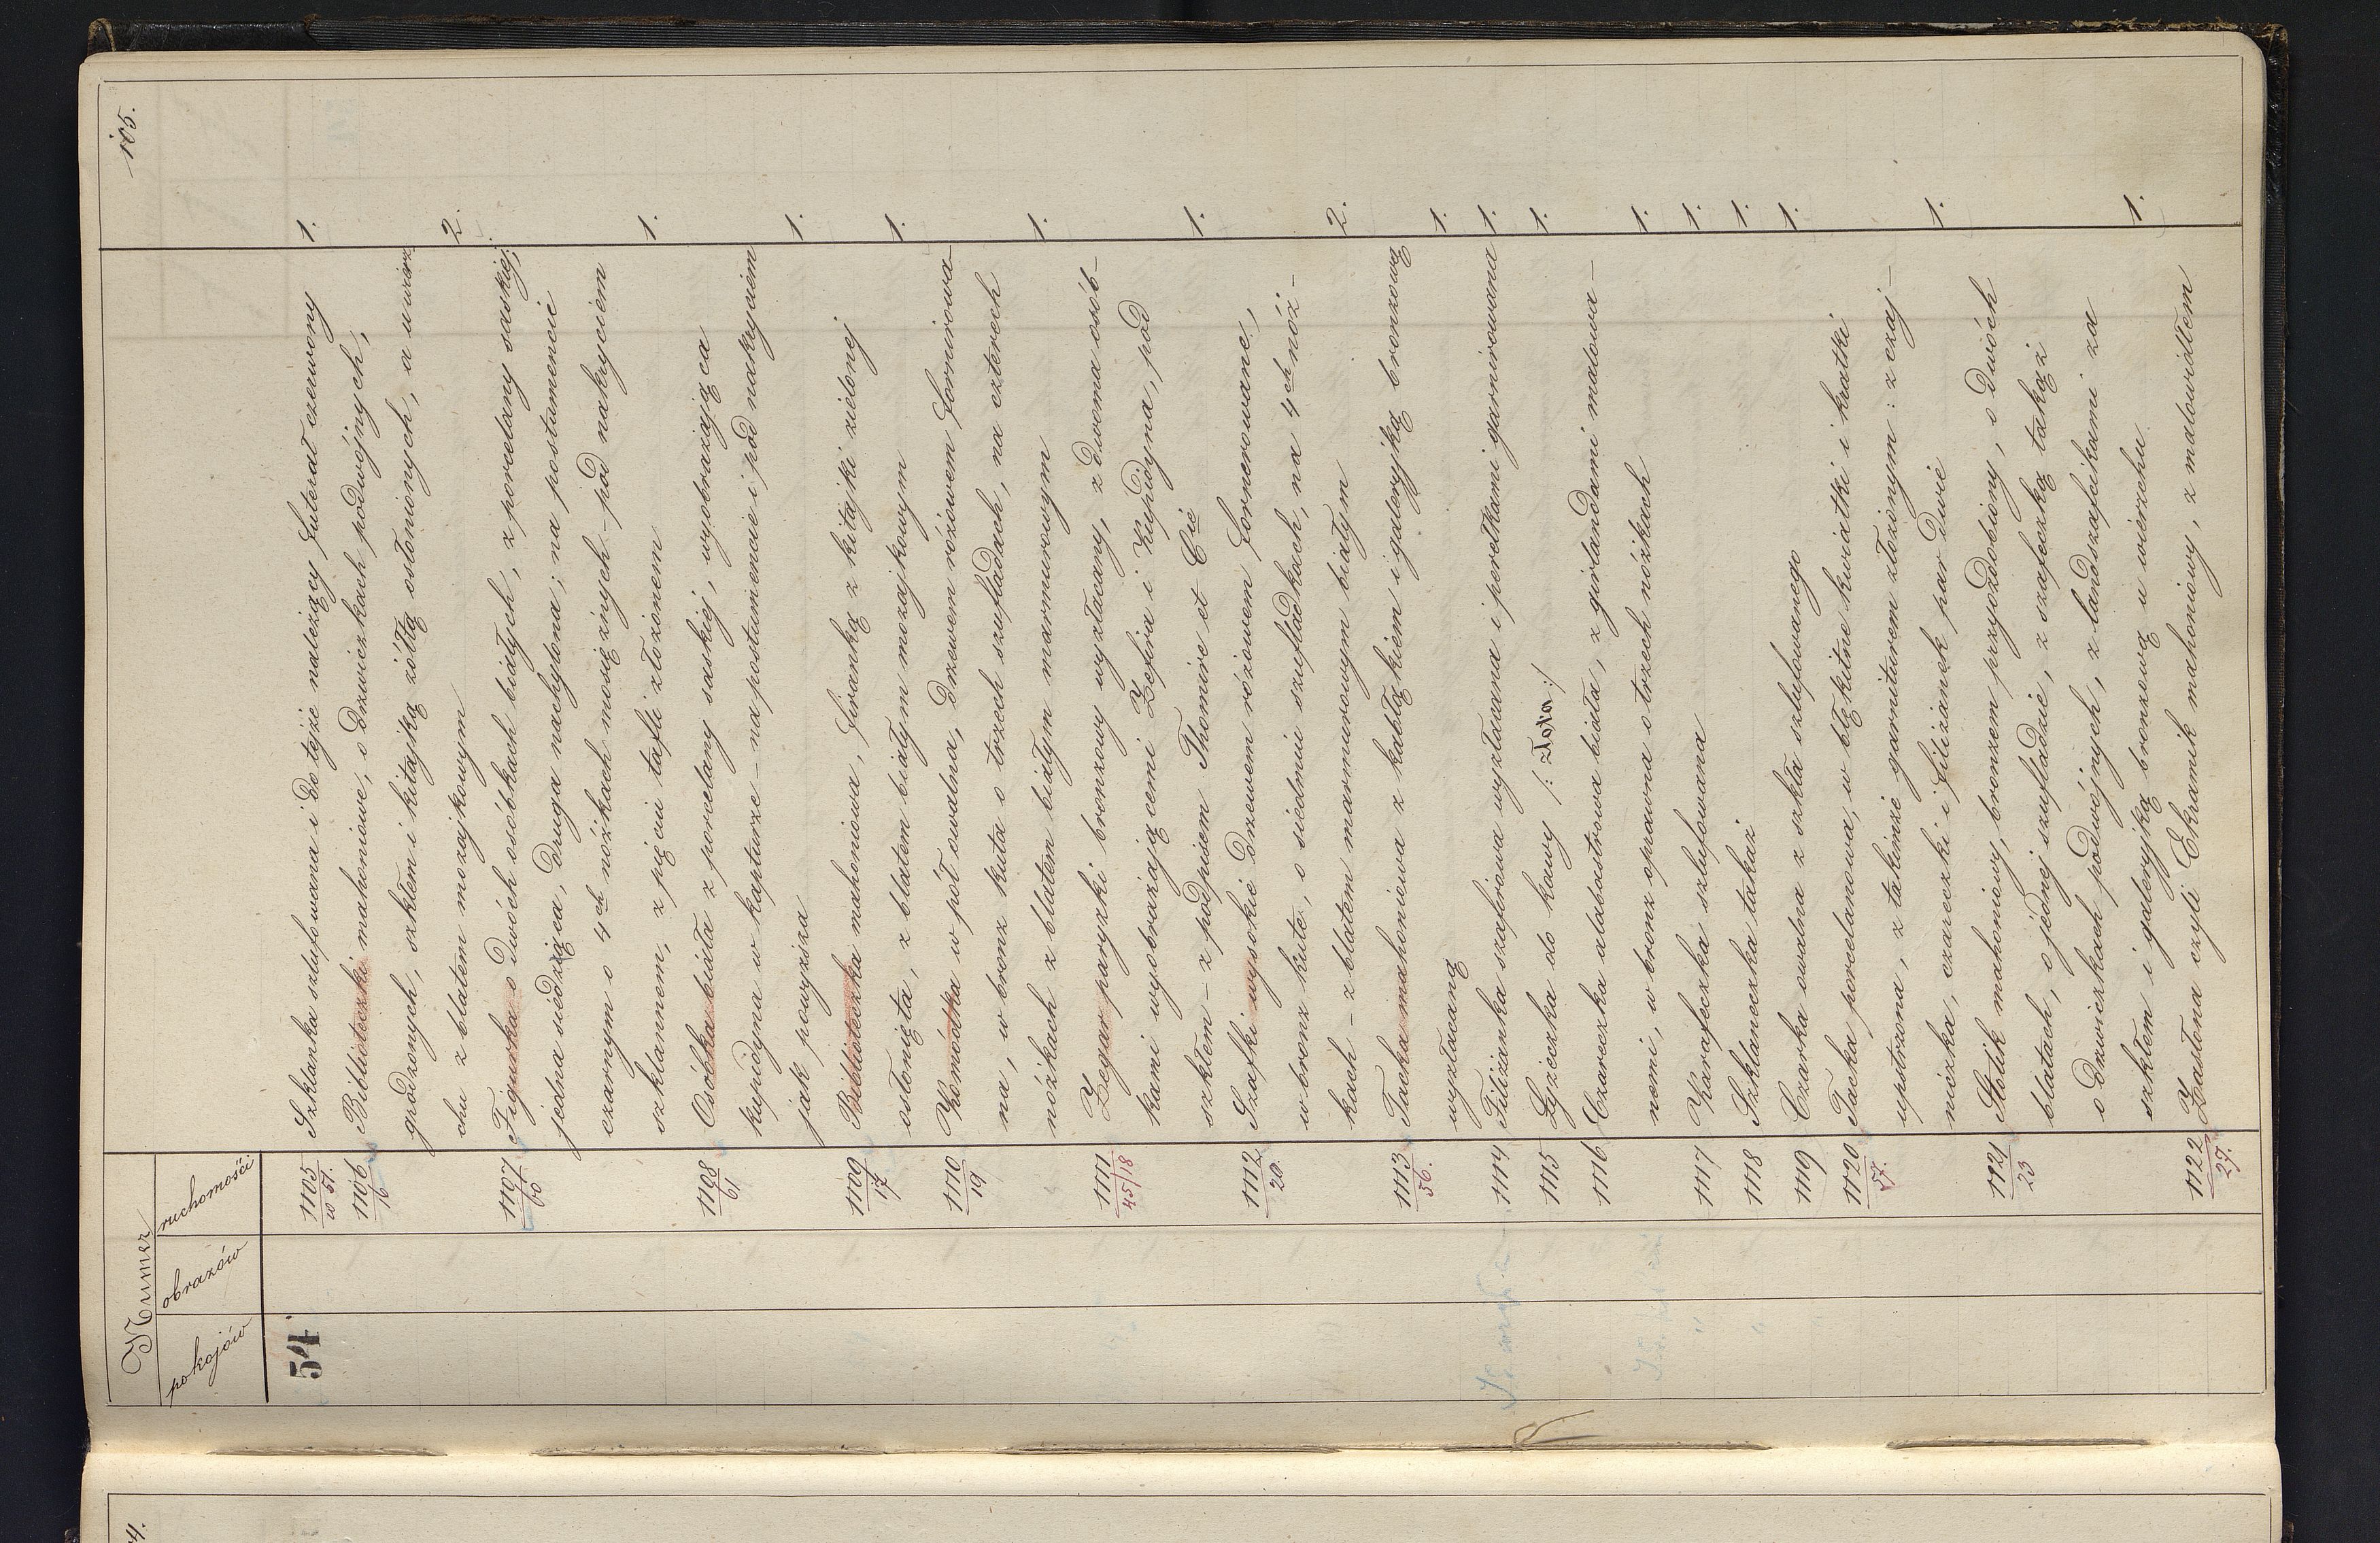 105.
Numer
pokojów obrazów ruchomości
54 1105 Szklanka szlufowana i do tejże należący futerał czerwony 1.
w 51.
1106 Biblioteczki mahoniowe, o drzwiczkach podwójnych,
16 grodzonych, szkłem i kitajką żółtą osłonionych, a u wierz
chu z blatem mozajkowym 2.
1107 Figurka o dwóch osóbkach białych, z porcelany saskiej;
60 jedna siedząca, druga nachylona; na postamencie
czarnym o 4ch nóżkach mosiężnych – pod nakryciem
szklannem, z pięciu tafli złożonem 1.
1108 Osóbka biała z porcelany saskiej, wyobrażająca
61 kupidyna w kapturze – na postumencie i pod nakryciem
jak powyższa 1.
1109 Biblioteczka mahoniowa, firanką z kitajki zielonej
17 osłonięta, z blatem białym mozajkowym 1.
1110 Komódka w pół owalna, drzewem różowem fornirowa
19 na, w bronz kuta o trzech szufladach, na czterech
nóżkach z blatem białym marmurowym 1.
1111 Zegar paryzki bronzowy wyzłacany, z dwoma osób–
45/18 kami wyobrażającemi Zefira i Kupidyna, pod
szkłem – z podpisem Thomire et Cie 1.
1112 Szafki wysokie drzewem różowem fornerowane,
20. w bronz kute, o siedmiu szufladkach, na 4ch nóż–
kach – z blatem marmurowym białym 2.
1113 Tacka mahoniowa z kabłąkiem i galeryjką bronzową
56. wyzłacaną 1.
1114 Filiżanka szafirowa wyzłacana i perełkami garnirowana 1.
1115 Łyżeczka do kawy /: złota :/ 1.
1116 Czareczka alabastrowa biała, z girlandami madowa–
nemi, w bronz oprawna o trzech nóżkach 1.
1117 Karafeczka szlufowana 1.
1118 Szklaneczka takaż 1.
1119 Czarka owalna z szkła szlufowanego 1.
1120 Tacka porcelanowa, w błękitne kwiatki i kratki
57. upstrzona, z takimże garniturem złożonym: z czaj–
niczka, czareczki i filiżanek par dwie 1.
1121 Stolik mahoniowy, bronzem przyozdobiony, o dwóch
23 blatach, o jednej szufladzie, z szafeczką takąż
o drzwiczkach podwójnych, z landszafcikami za
szkłem i galeryjką bronzową u wierzchu 1.
1122 Zasłona czyli Ekramik mahoniowy, z malowidłem
29.
4.